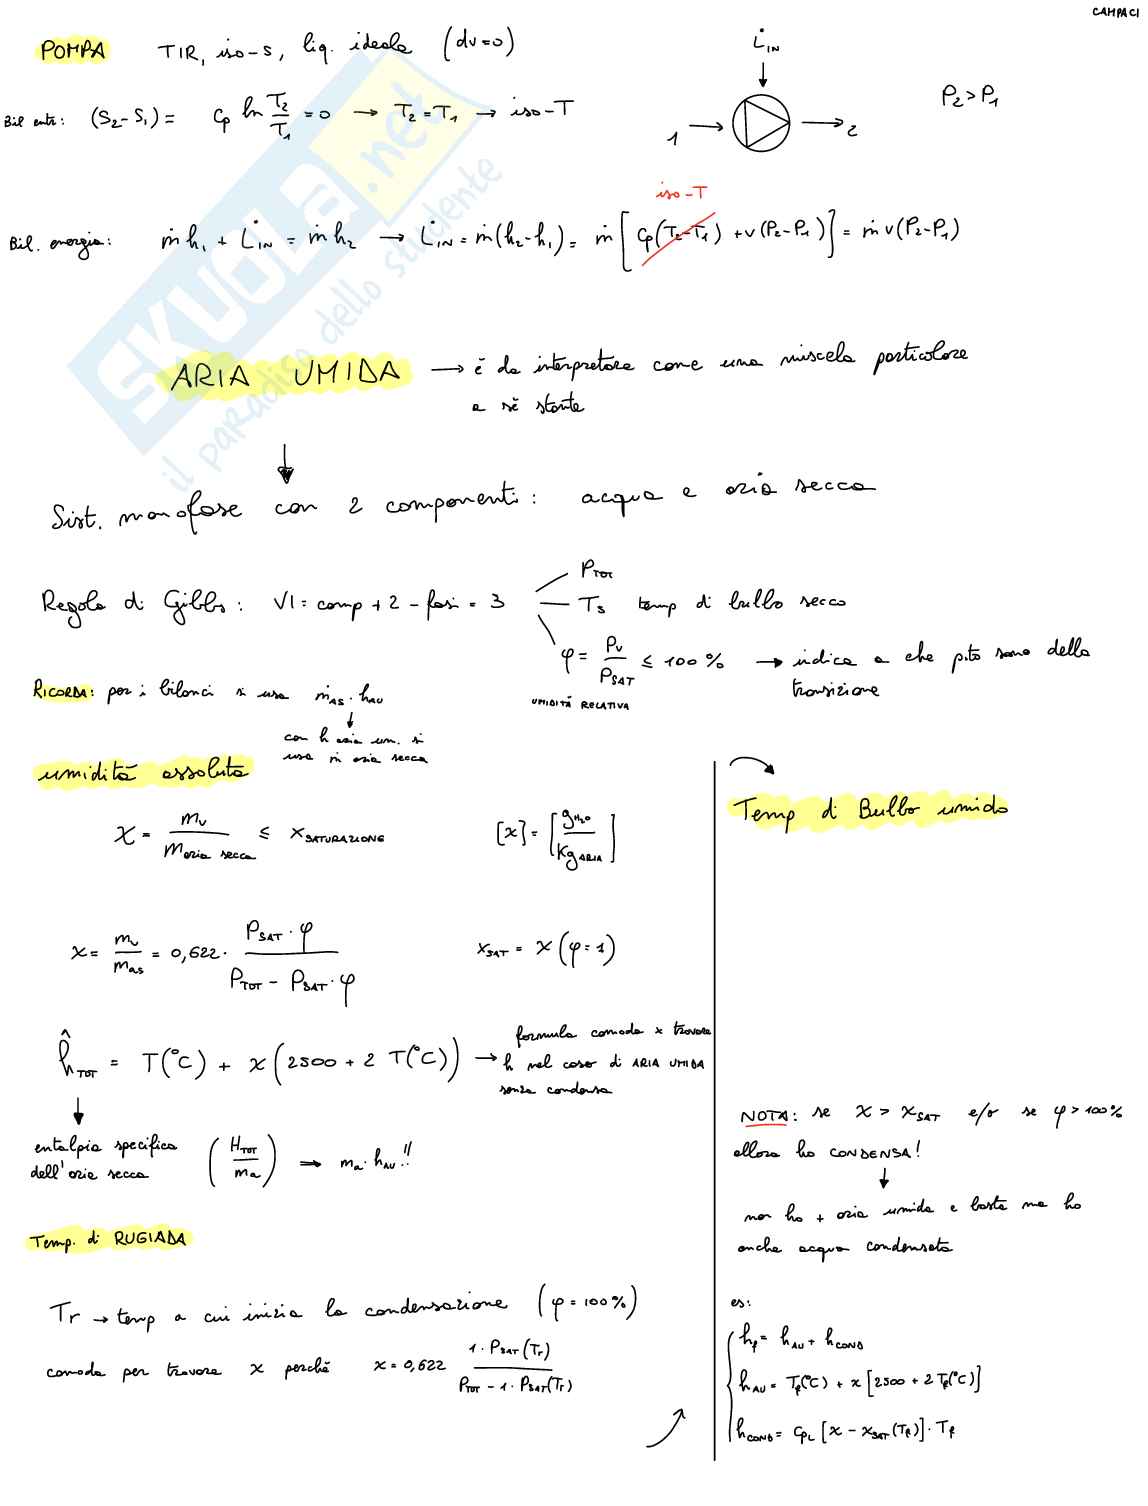 CAMPACI
POMPA TIR, iso-s, liq. ideale (dv=0)
L̇IN
P2 > P1
Bil entr: (S2-S1) = cp ln T2/T1 = 0 → T2 = T1 → iso-T
1 → → 2
iso-T
Bil. energia: ṁh1 + L̇IN = ṁh2 → L̇IN = ṁ(h2-h1) = ṁ[cp(T2-T1) + v(P2-P1)] = ṁv(P2-P1)
ARIA UMIDA → è da interpretare come una miscela particolare
a sè stante
Sist. monofase con 2 componenti: acqua e aria secca
Regola di Gibbs: VI = comp + 2 - fasi = 3
PTOT
Ts temp di bulbo secco
φ = Pv/PSAT ≤ 100% → indica a che pto sono della
transizione
UMIDITÀ RELATIVA
RICORDA: per i bilanci si usa ṁAS · hAU
con h aria um. si
usa ṁ aria secca
umidità assoluta
x = mv/maria secca ≤ xSATURAZIONE [x] = [gH2O/KgARIA]
x = mv/mas = 0,622 · PSAT · φ / PTOT - PSAT · φ xSAT = x(φ=1)
ĥTOT = T(°C) + x(2500 + 2 T(°C)) → formula comoda x trovare
h nel caso di ARIA UMIDA
senza condensa
entalpia specifica
dell'aria secca (HTOT/ma) → ma · hAU!!
Temp. di RUGIADA
Tr → temp a cui inizia la condensazione (φ = 100%)
comoda per trovare x perché x = 0,622 1 · PSAT(Tr) / PTOT - 1 · PSAT(Tr)
Temp di Bulbo umido
NOTA: se x > xSAT e/o se φ > 100%
allora ho CONDENSA!
non ho + aria umida e basta ma ho
anche acqua condensata
es:
hf = hAU + hCOND
hAU = Tf(°C) + x[2500 + 2 Tf(°C)]
hCOND = cPL [x - xSAT(Tf)] · Tf
SKUOLA.net
il paradiso dello studente